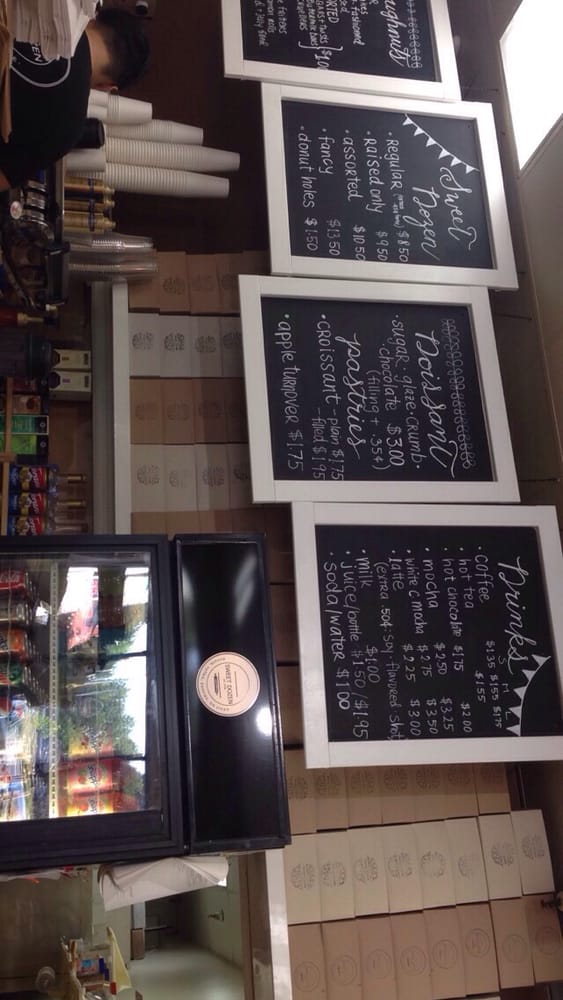 Doughnuts
fashioned
ASSORTED
Sweet
Dozen
• Regular $8.50
• Raised only $9.50
• assorted $10.50
• fancy $13.50
• donut holes $1.50
Doissant
• sugar • glaze • crumb •
chocolate $3.00
(filling + .35¢)
pastries
• croissant - plain $1.75
- filled $1.95
• apple turnover $1.75
Drinks
S M L
• coffee $1.35 $1.55 $1.75
• hot tea $1.55
• hot chocolate $1.75 $2.00
• mocha $2.50 $3.25
• white c mocha $2.75 $3.50
• latte $2.25 $3.00
(extra .50¢ soy, flavored shot)
• milk $1.00
• Juice/bottle $1.50/$1.95
• Soda/water $1.00
SWEET DOZEN